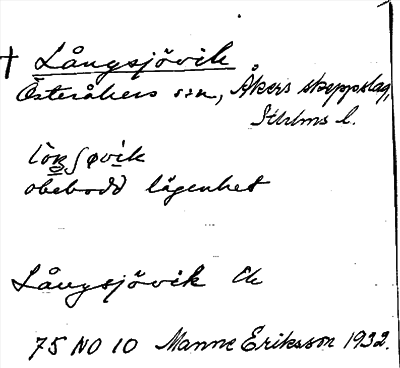 † Långsjövik
Österåkers sn, Åkers skeppslag,
Sthlms l.
obebodd lägenhet
Långsjövik Ek
75 NO 10 Manne Eriksson 1932.